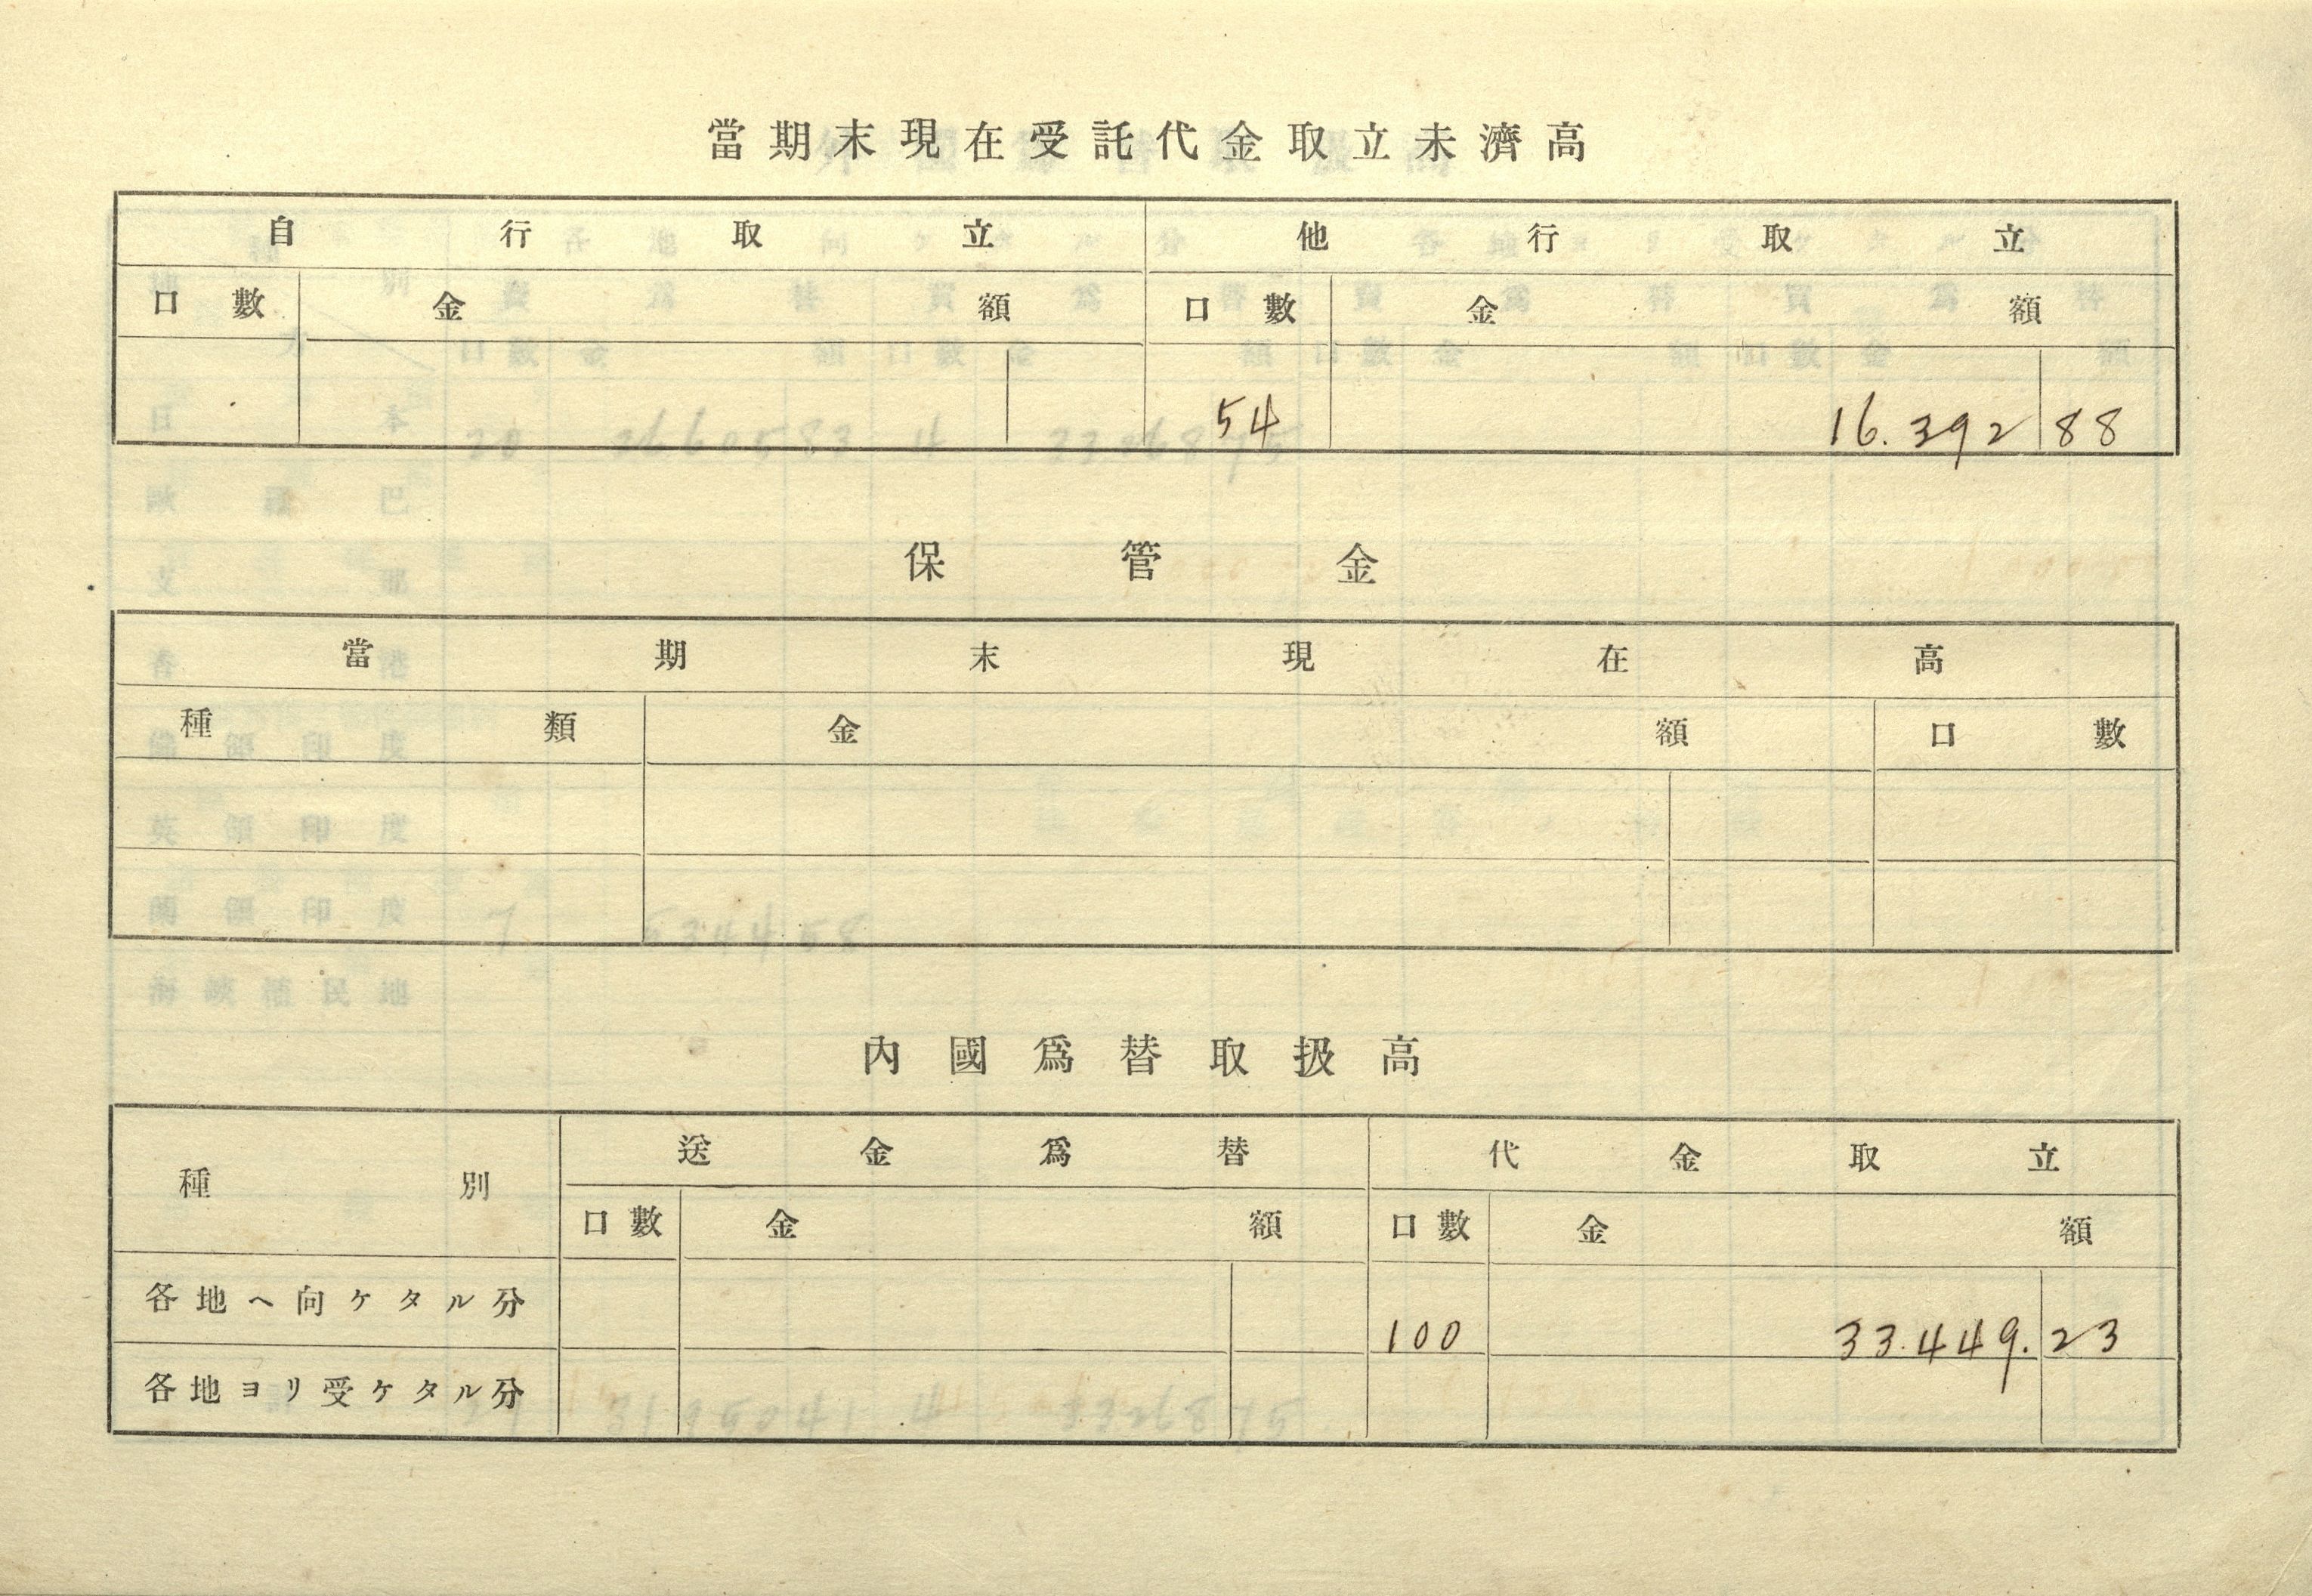 當期末現在受託代金取立未濟高
自行取立 他行取立
口數 金額 口數 金額
54 16.392 88
保管金
當期末現在高
種類 金額 口數
內國爲替取扱高
種別 送金爲替 代金取立
口數 金額 口數 金額
各地ヘ向ケタル分 100 33.449. 23
各地ヨリ受ケタル分